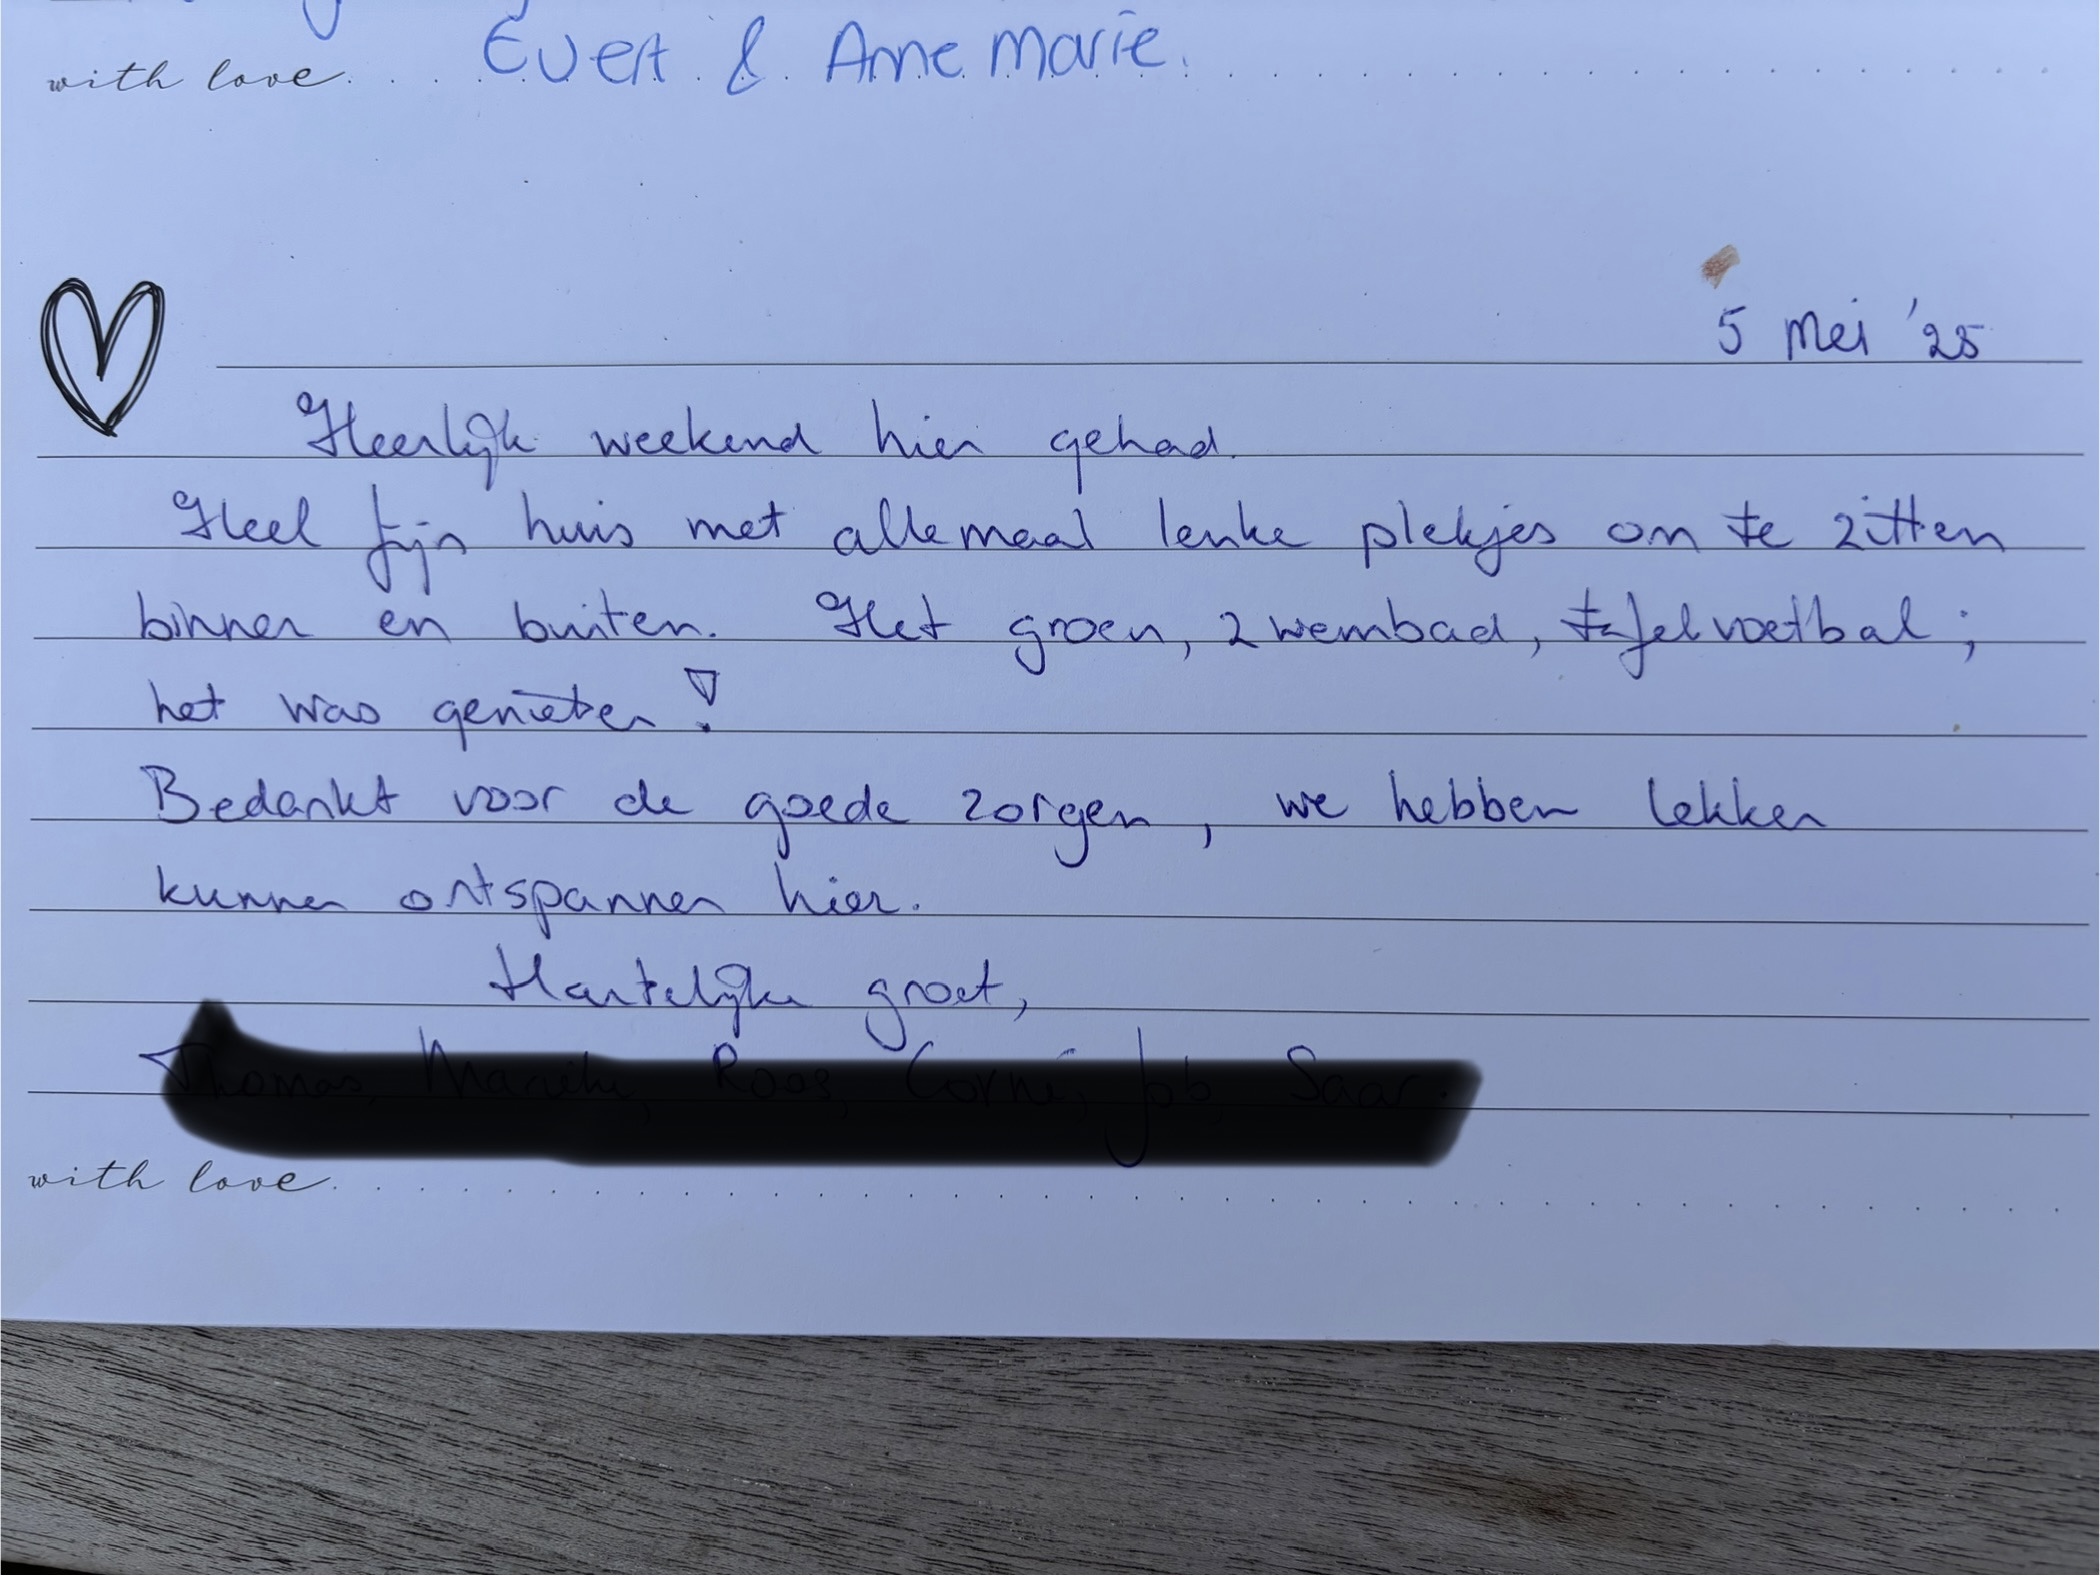 with love. Evert & Annemarie.
5 mei '25
Heerlijk weekend hier gehad.
Heel fijn huis met allemaal leuke plekjes om te zitten
binnen en buiten. Het groen, zwembad, tafelvoetbal;
het was genieten!
Bedankt voor de goede zorgen, we hebben lekker
kunnen ontspannen hier.
Hartelijke groet,
with love.